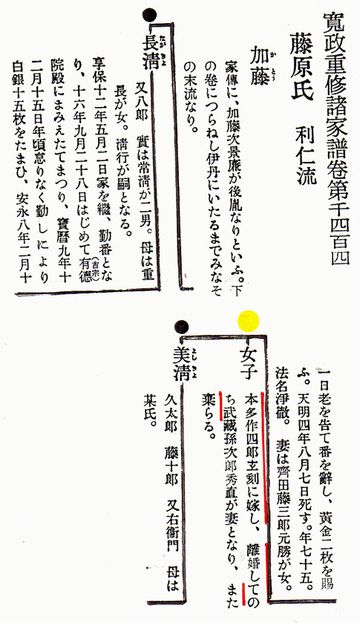 寬政重修諸家譜卷第千四百四
藤原氏　利仁流
加藤
家傳に、加藤次景廉が後胤なりといふ。下
の卷につらねし伊丹にいたるまでみなそ
の末流なり。
長淸
又八郎　實は常淸が二男。母は重
長が女。淸行が嗣となる。
享保十二年五月二日家を繼、勤番とな
り、十六年九月二十八日はじめて有德
院殿にまみえたてまつり、寶曆九年十
二月十五日年頃怠りなく勤しにより
白銀十五枚をたまひ、安永八年二月十
一日老を告て番を辭し、黃金二枚を賜
ふ。天明四年八月七日死す。年七十五。
法名淨徹。　妻は齊田藤三郎元勝が女。
女子
本多作四郎玄刻に嫁し、離婚しての
ち武藏孫次郎秀直が妻となり、また
棄らる。
美淸
久太郎　藤十郎　又右衞門　母は
某氏。